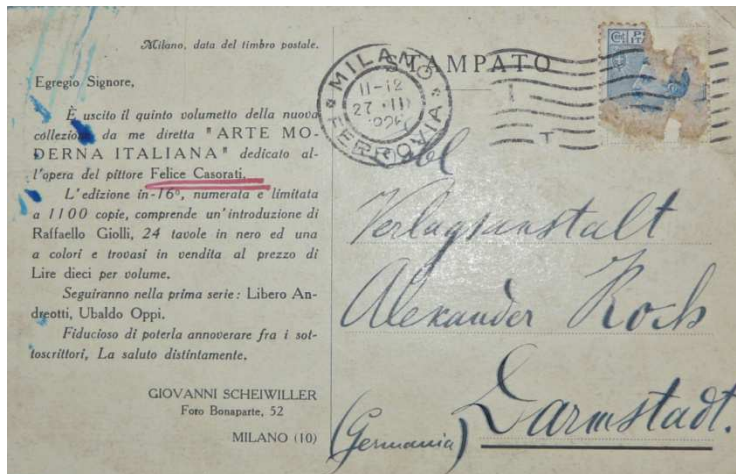 Milano, data del timbro postale.
Egregio Signore,
È uscito il quinto volumetto della nuova
collezione da me diretta "ARTE MO-
DERNA ITALIANA" dedicato al-
l'opera del pittore Felice Casorati.
L'edizione in-16º, numerata e limitata
a 1100 copie, comprende un'introduzione di
Raffaello Giolli, 24 tavole in nero ed una
a colori e trovasi in vendita al prezzo di
Lire dieci per volume.
Seguiranno nella prima serie: Libero An-
dreotti, Ubaldo Oppi.
Fiducioso di poterla annoverare fra i sot-
toscrittori, La saluto distintamente.
GIOVANNI SCHEIWILLER
Foro Bonaparte, 52
MILANO (10)
STAMPATO
MILANO
11-12
27 III
FERROVIA
Verlagsanstalt
Alexander Koch
Darmstadt.
(Germania)